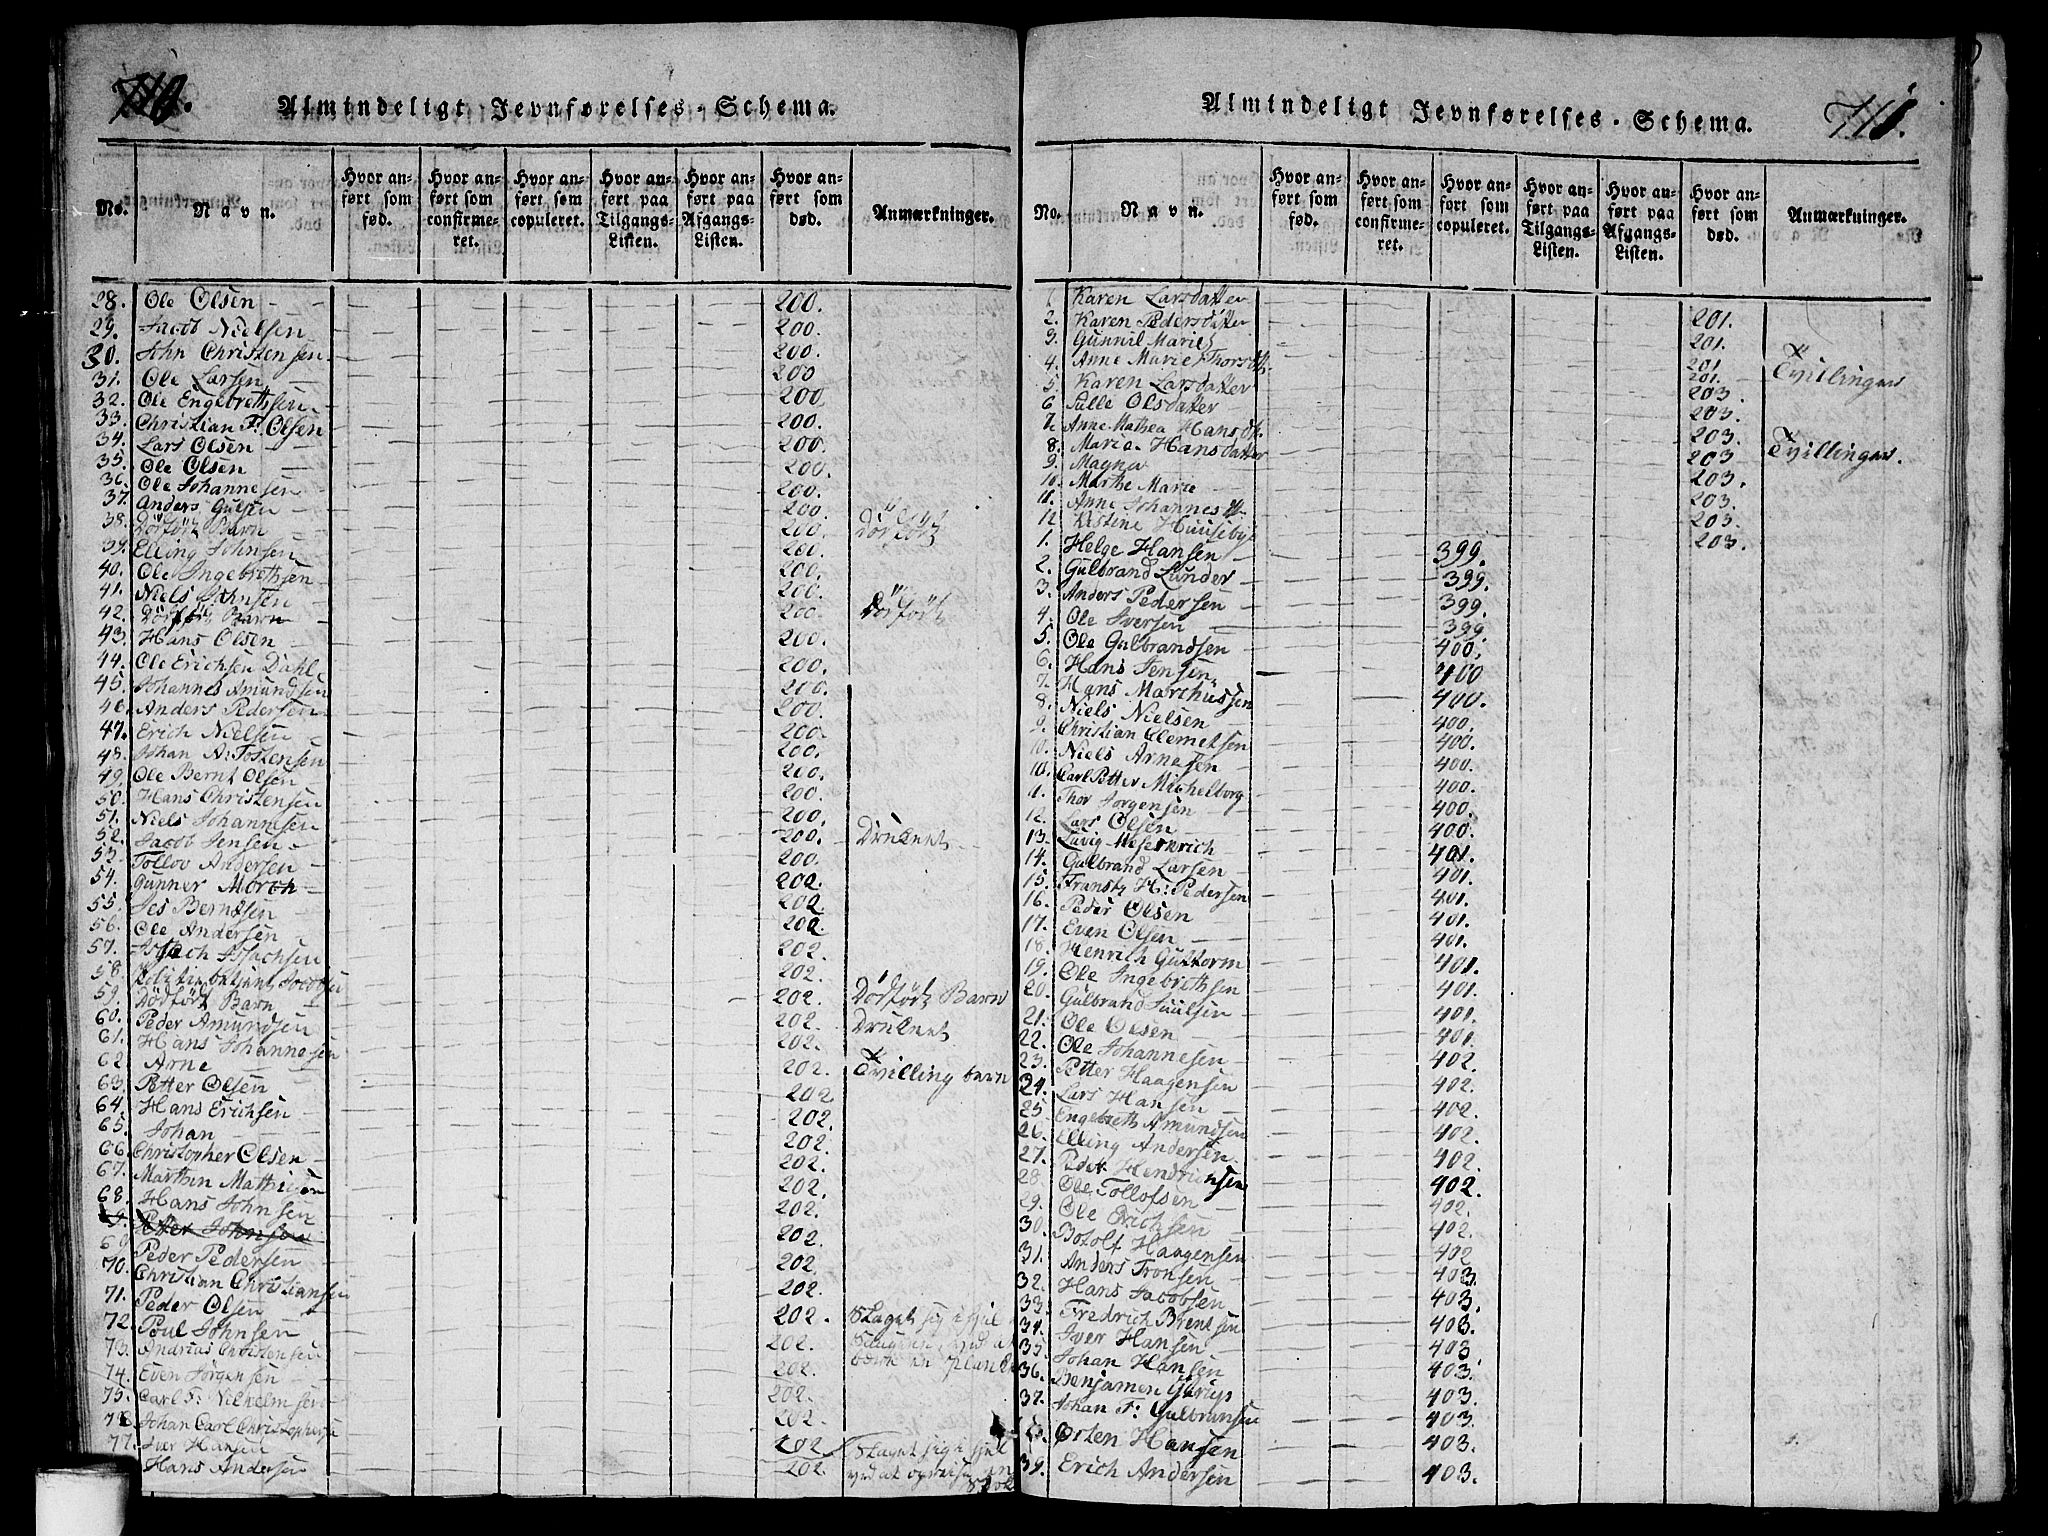 710.
Almindeligt Jevnførelses-Schema.
No.
Navn.
Hvor anført som fød.
Hvor anført som confirmeret.
Hvor anført som copuleret.
Hvor anført paa Tilgangs-Listen.
Hvor anført paa Afgangs-Listen.
Hvor anført som død.
Anmærkninger.
28. Ole Olsen 200.
29. Jacob Nielsen 200.
30. John Christensen 200.
31. Ole Larsen 200
32. Ole Engebrethsen 200
33. Christian F. Olsen 200.
34. Lars Olsen 200.
35. Ole Olsen 200.
36. Ole Johannesen 200.
37. Anders Gulsen 200.
38. Dödfört Barn 200. Dödfört
39. Elling Johnsen 200.
40. Ole Ingebrethsen 200.
41. Niels Johnsen 200.
42. Dödfört Barn 200. Dödfört
43. Hans Olsen 200.
44. Ole Erichsen Dahl 200.
45. Johannes Amundsen 200.
46. Anders Pedersen 200.
47. Erich Nielsen 200.
48. Johan A: Tostensen 200.
49. Ole Bernt Olsen 200.
50. Hans Christensen 200.
51. Niels Johannesen 200.
52. Jacob Jensen 200. Druknet
53. Tollov Andersen 200.
54. Gunner Morch 202.
55. Jes Berndsen 202.
56. Ole Andersen 202.
57. Isach Isachsen 202.
58. 202.
59. Dödfört Barn 202. Dödfört Barn
60. Peder Amundsen 202. Druknet
61. Hans Johannesen 202.
62 Arne 202. Tvilling barn
63. Petter Olsen 202
64. Hans Erichsen 202.
65. Johan 202.
66. Christopher Olsen 202.
67. Marthin Mathiesen 202.
68. Hans Johnsen 202.
Petter Johnsen
69. Peder Pedersen 202.
70. Christian Christiansen 202.
71. Peder Olsen 202.
72. Poul Johnsen 202. Slaget sig ihjel
73. Andrias Christensen 202.
74. Even Jörgensen 202.
75. Carl F: Vilhelmsen 202.
76 Johan Carl Christophersen 202.
77. Iver Hansen 202 Slaget sig ihjel
Hans Andersen 202. ved at
711.
Almindeligt Jevnførelses-Schema.
No.
Navn.
Hvor anført som fød.
Hvor anført som confirmeret.
Hvor anført som copuleret.
Hvor anført paa Tilgangs-Listen.
Hvor anført paa Afgangs-Listen.
Hvor anført som død.
Anmærkninger.
1. Karen Larsdatter 201.
2. Karen Pedersdatter 201.
3. Gunnil Marie 201
4. Anne Marie Thorsdt. 201. Tvillinger
5. Karen Larsdatter 203.
6 Sille Olsdatter 203.
7. Anne Mathea Hansdt. 203.
8. Marie Hansdatter 203 Tvillinger.
9. Magna 203.
10. Marthe Marie 203.
11. Anne Johannesdt. 203.
12 Kistene Huuseby 203.
1. Helge Hansen 399.
2. Gulbrand Lunder 399.
3. Anders Pedersen 399.
4. Ole Iversen 399
5. Ole Gulbrandsen 400.
6. Hans Jensen 400
7. Hans Marchussen 400.
8. Niels Nielsen 400.
9. Christian Clemetsen 400.
10. Niels Arnesen 400.
10. Carl Petter Michelborg 400.
11. Thor Jorgensen 400.
12. Lars Olsen 400.
13. 401.
14. Gulbrand Larsen 401.
15. Frantz H: Pedersen 401.
16. Peder Olsen 401.
17. Even Olsen 401.
18. Henrich Guttorm 401.
19. Ole Ingebrethsen 401.
20. Gulbrand Juulsen 401.
21. Ole Olsen 401.
22. Ole Johannesen 402.
23. Petter Haagensen 402.
24. Lars Hansen 402.
25 Engebreth Amundsen 402.
26. Elling Andersen 402.
27. Peder Hendrichsen 402.
28. Ole Tollofsen 402.
29. Ole Erichsen 402.
30. Botolf Haagensen 402
31. Anders Tronsen 403.
32. Hans Jacobsen 403.
33. Fredrich Berntsen 403.
34. Iver Hansen 403
35. Johan Hansen 403.
36. Benjamen 403.
37. Johan F: Gulbransen 403.
Orten Hansen 403.
39. Erich Andersen 403.